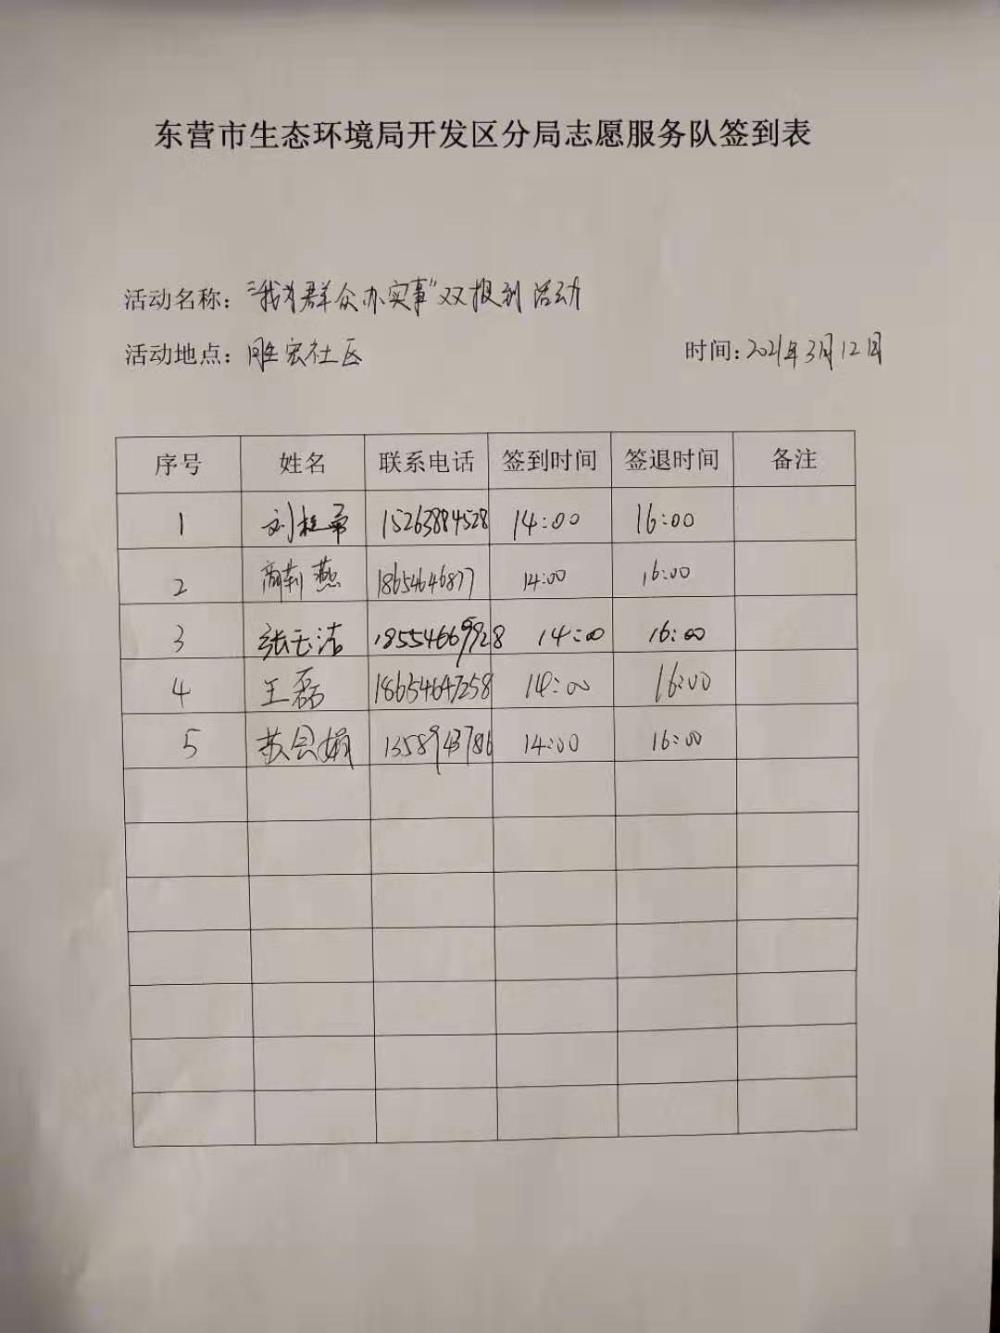 东营市生态环境局开发区分局志愿服务队签到表
活动名称："我为群众办实事"双报到活动
活动地点：胜宏社区 时间：2021年3月12日
序号 姓名 联系电话 签到时间 签退时间 备注
1 刘 15263884528 14:00 16:00
2 商莉燕 18654646877 14:00 16:00
3 张玉洁 18554669928 14:00 16:00
4 王磊 18654647258 14:00 16:00
5 苏会娟 1358943786 14:00 16:00